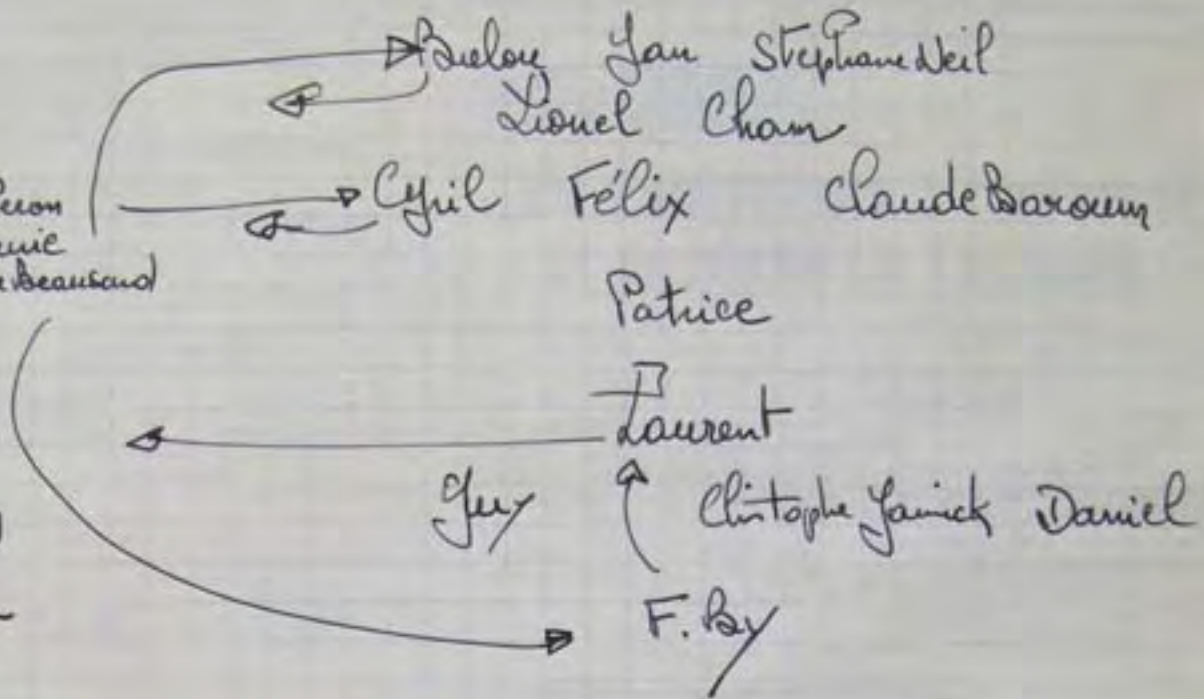 Yan Stephane Neil
Lionel Cham
Cyril Félix Claude Baroum
Beausard
Patrice
Laurent
Guy Chistophe Yanick Daniel
F. By